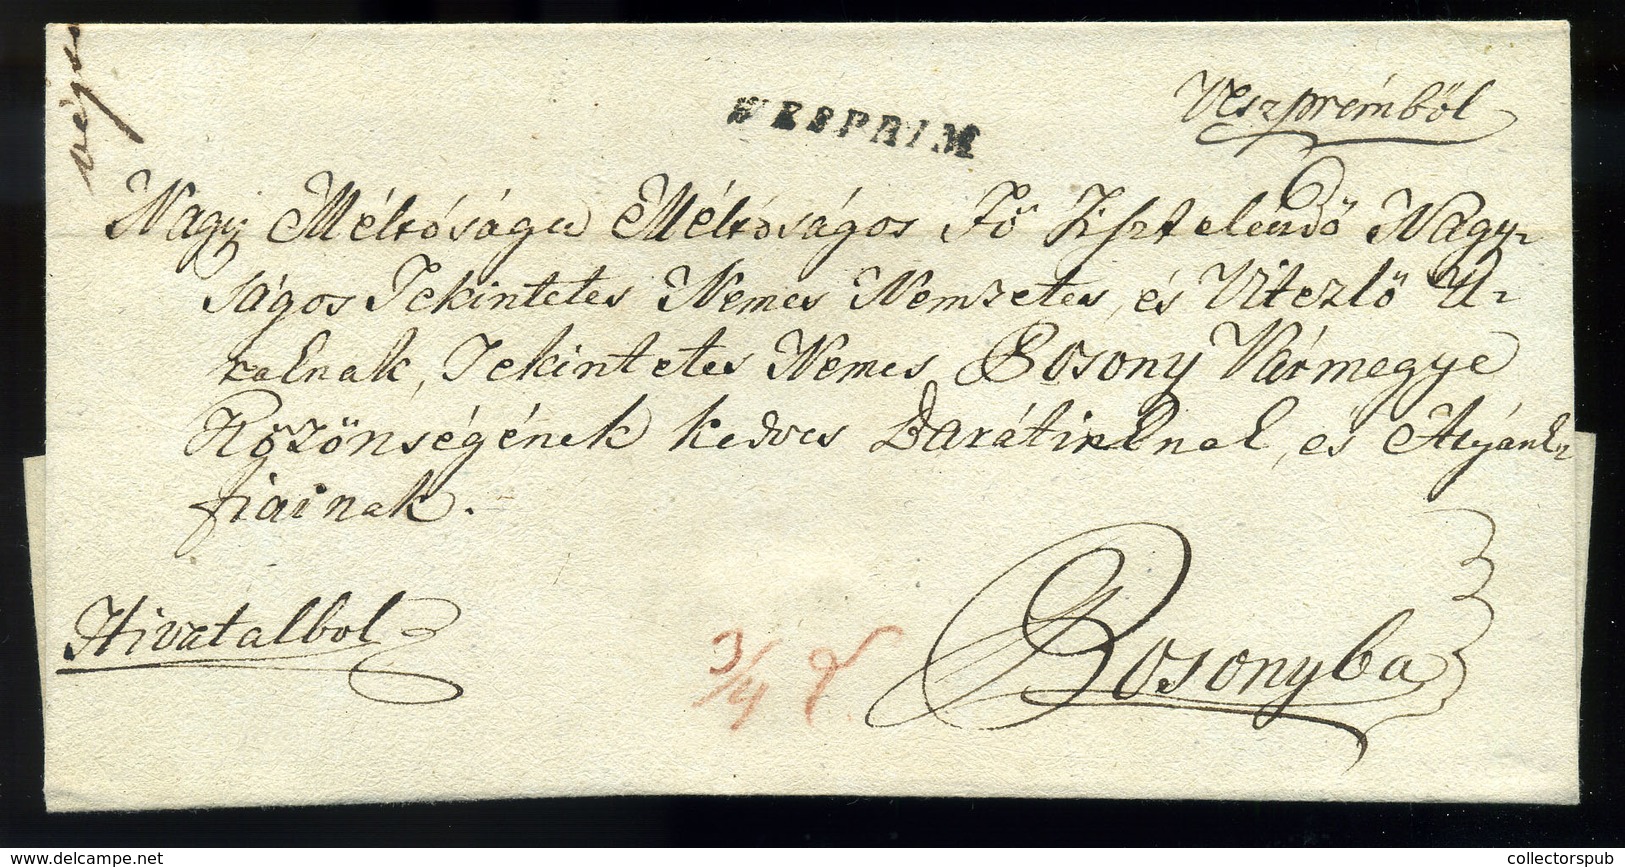 Veszprémből
WESPRIM
Nagy Méltóságu Méltóságos Fő Tisztelendő Nagy-
ságos Tekintetes Nemes Nemzetes, és Vitezlő U-
ralnak, Tekintetes Nemes Posony Vármegye
Közönségének kedves Barátinknak, és Atyánk-
fiainak.
Hivatalbol
3/4
Posonyba
collectorspub
www.delcampe.net